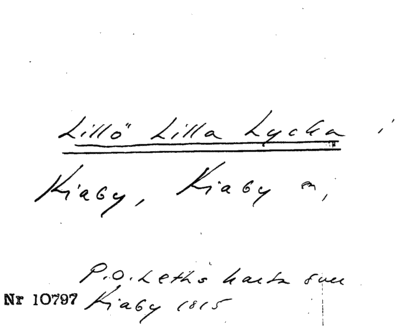 Lillö Lilla Lycka i
Kiaby, Kiaby sn,
P.O. Leths karta över
Nr 10797 Kiaby 1815